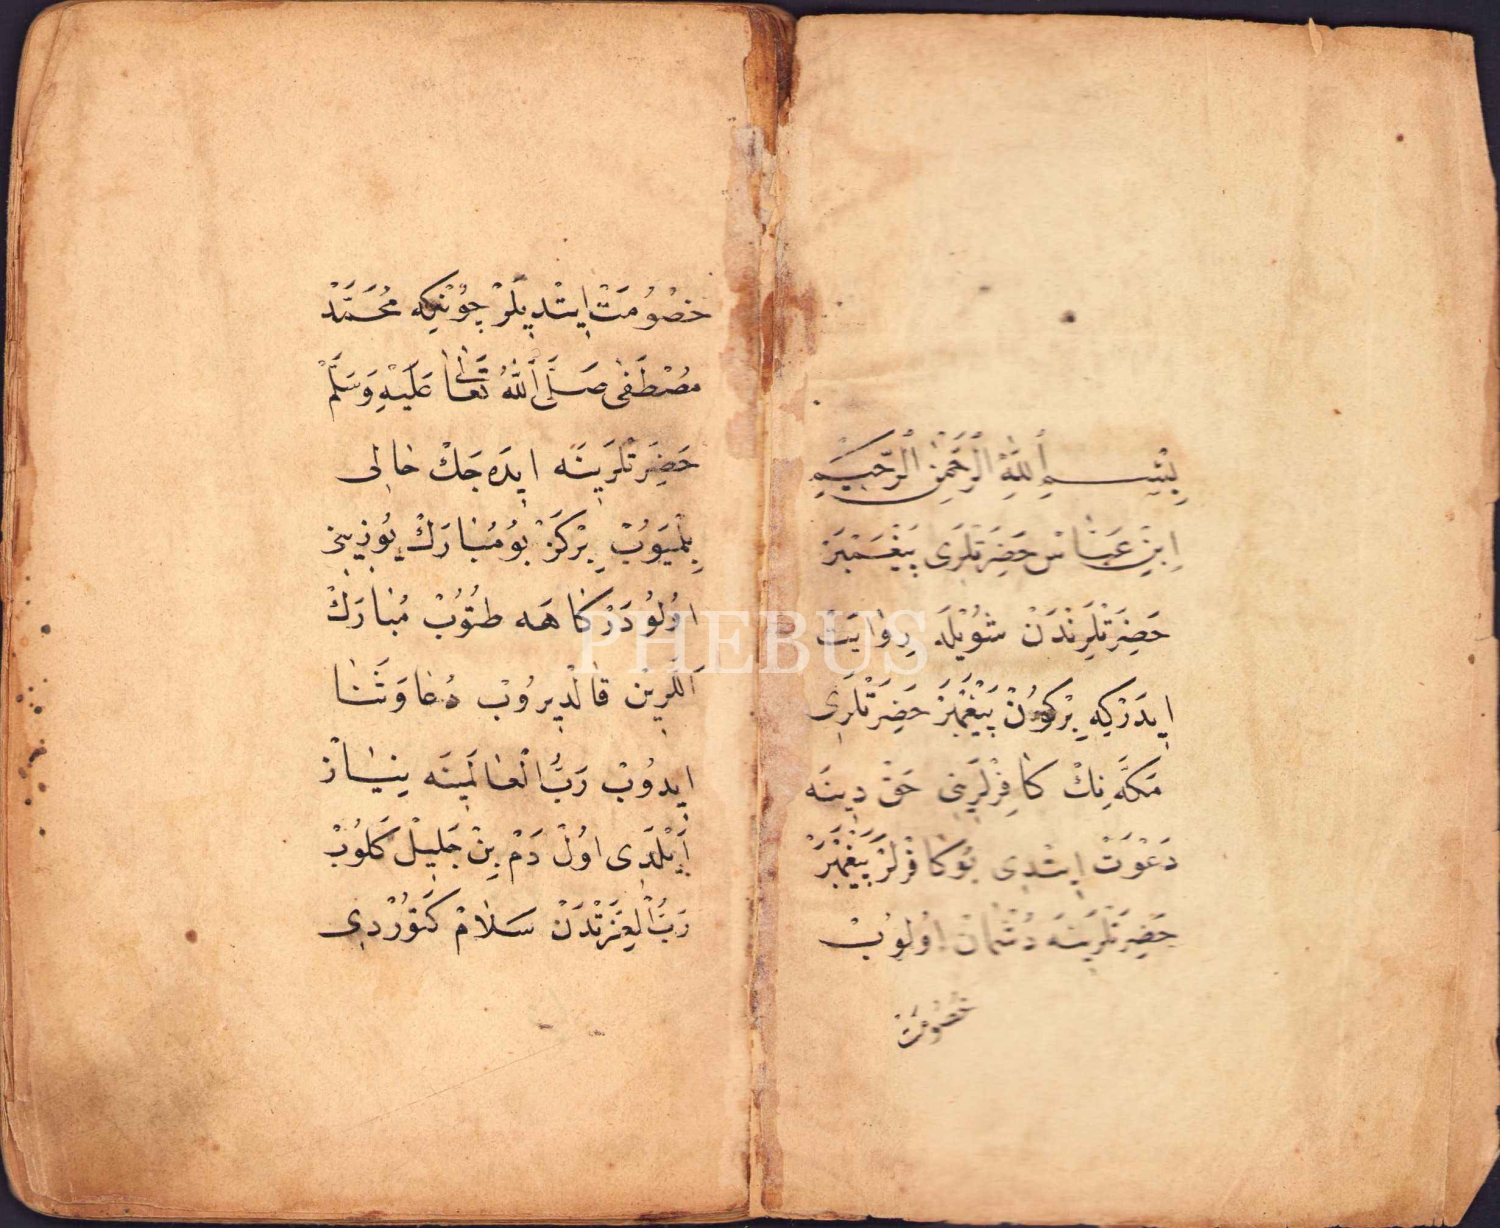 بِسْمِ اللّٰهِ الرَّحْمٰنِ الرَّحِيمِ
اِبْنِ عَبَّاسْ حَضَرَتْلَرِى پَيْغَمْبَرْ
حَضَرَتْلَرِنْدَنْ شُويْلَه رِوَايَتْ
اِيدَرْكِه بِرْكُونْ پَيْغَمْبَرْ حَضَرَتْلَرِى
مَكَّه نِكْ كَافِرْلَرِينِى حَقْ دِينَه
دَعْوَتْ اِيتْدِى بُوكَافِرْلَرْ پَيْغَمْبَرْ
حَضَرَتْلَرِينَه دُشْمَانْ اوُلُوبْ
خصومت
خصُومَتْ اِيتْدِيلَرْ چُونْكِه مُحَمَّدْ
مُصْطَفٰى صَلَّى اللّٰهُ تَعَالٰى عَلَيْهِ وَسَلَّمْ
حَضَرَتْلَرِينَه ايدَه جَكْ حَالِى
بِلْمَيُوبْ بِرْكَزْ بُو مُبَارَكْ يُوزِينِى
اوُلُو دَرْكَاهَه طُتُوبْ مُبَارَكْ
اَللَّرِينْ قَالْدِيرُوبْ دُعَا وَثَنَا
اِيدُوبْ رَبُّ الْعَالَمِينَه نِيَازْ
اَيْلَدِى اوُلْ دَمْ بِنْ جَلِيلْ كَلُوبْ
رَبُّ الْعِزَّتْدَنْ سَلَامْ كَتُورْدِى
PHEBUS